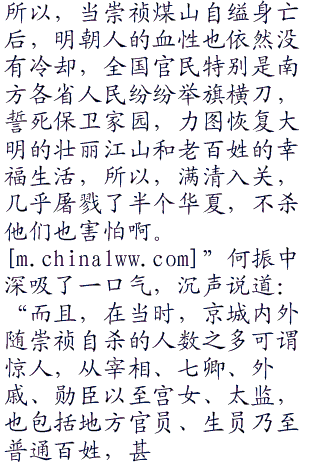 所以，当崇祯煤山自缢身亡
后，明朝人的血性也依然没
有冷却，全国官民特别是南
方各省人民纷纷举旗横刀，
誓死保卫家园，力图恢复大
明的壮丽江山和老百姓的幸
福生活，所以，满清入关，
几乎屠戮了半个华夏，不杀
他们也害怕啊。
[m.china1ww.com]”何振中
深吸了一口气，沉声说道：
“而且，在当时，京城内外
随崇祯自杀的人数之多可谓
惊人，从宰相、七卿、外
戚、勋臣以至宫女、太监，
也包括地方官员、生员乃至
普通百姓，甚